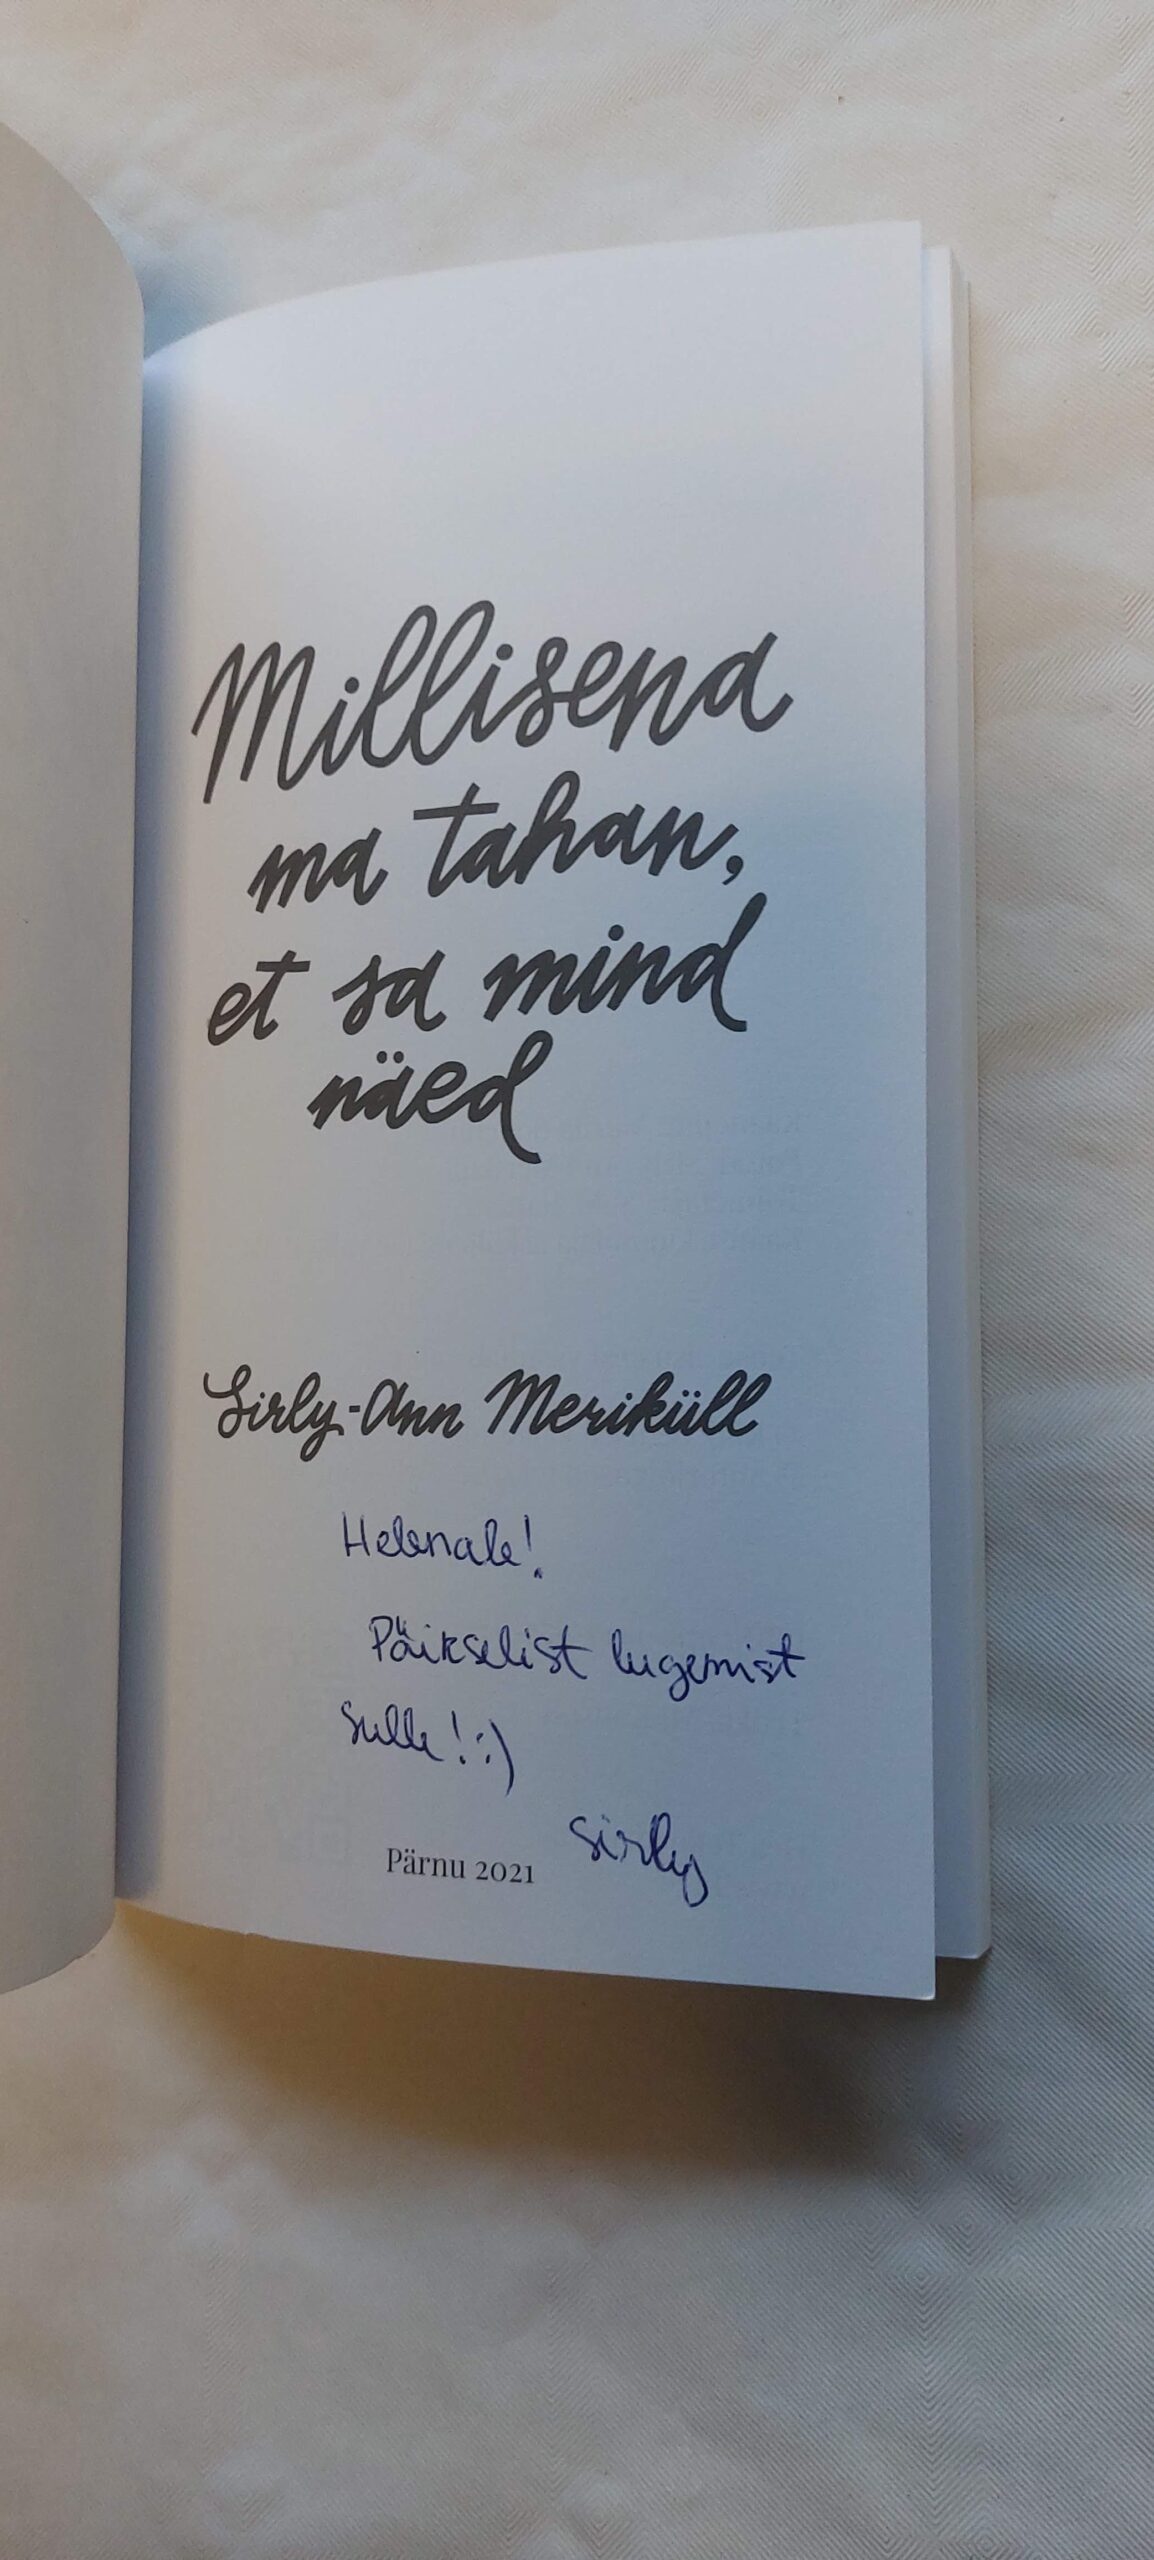 Millisena
ma tahan,
et sa mind
näed
Sirly-Ann Meriküll
Helenale!
Päikselist lugemist
sulle! :)
Sirly
Pärnu 2021